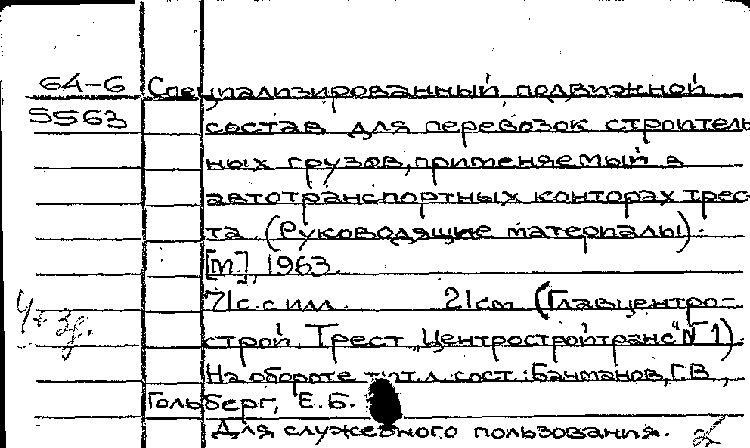 64-6 Специализированный подвижной
5563 состав для перевозок строитель
ных грузов, применяемый в
автотранспортных конторах трес-
та (Руководящие материалы).
[М], 1963.
71с. с илл. 21см (Главцентро-
строй. Трест „Центростройтранс" № 1).
На обороте тит. л. сост.: Бачманов, Г.В.,
Гольберг, Е.Б.
Для служебного пользования.